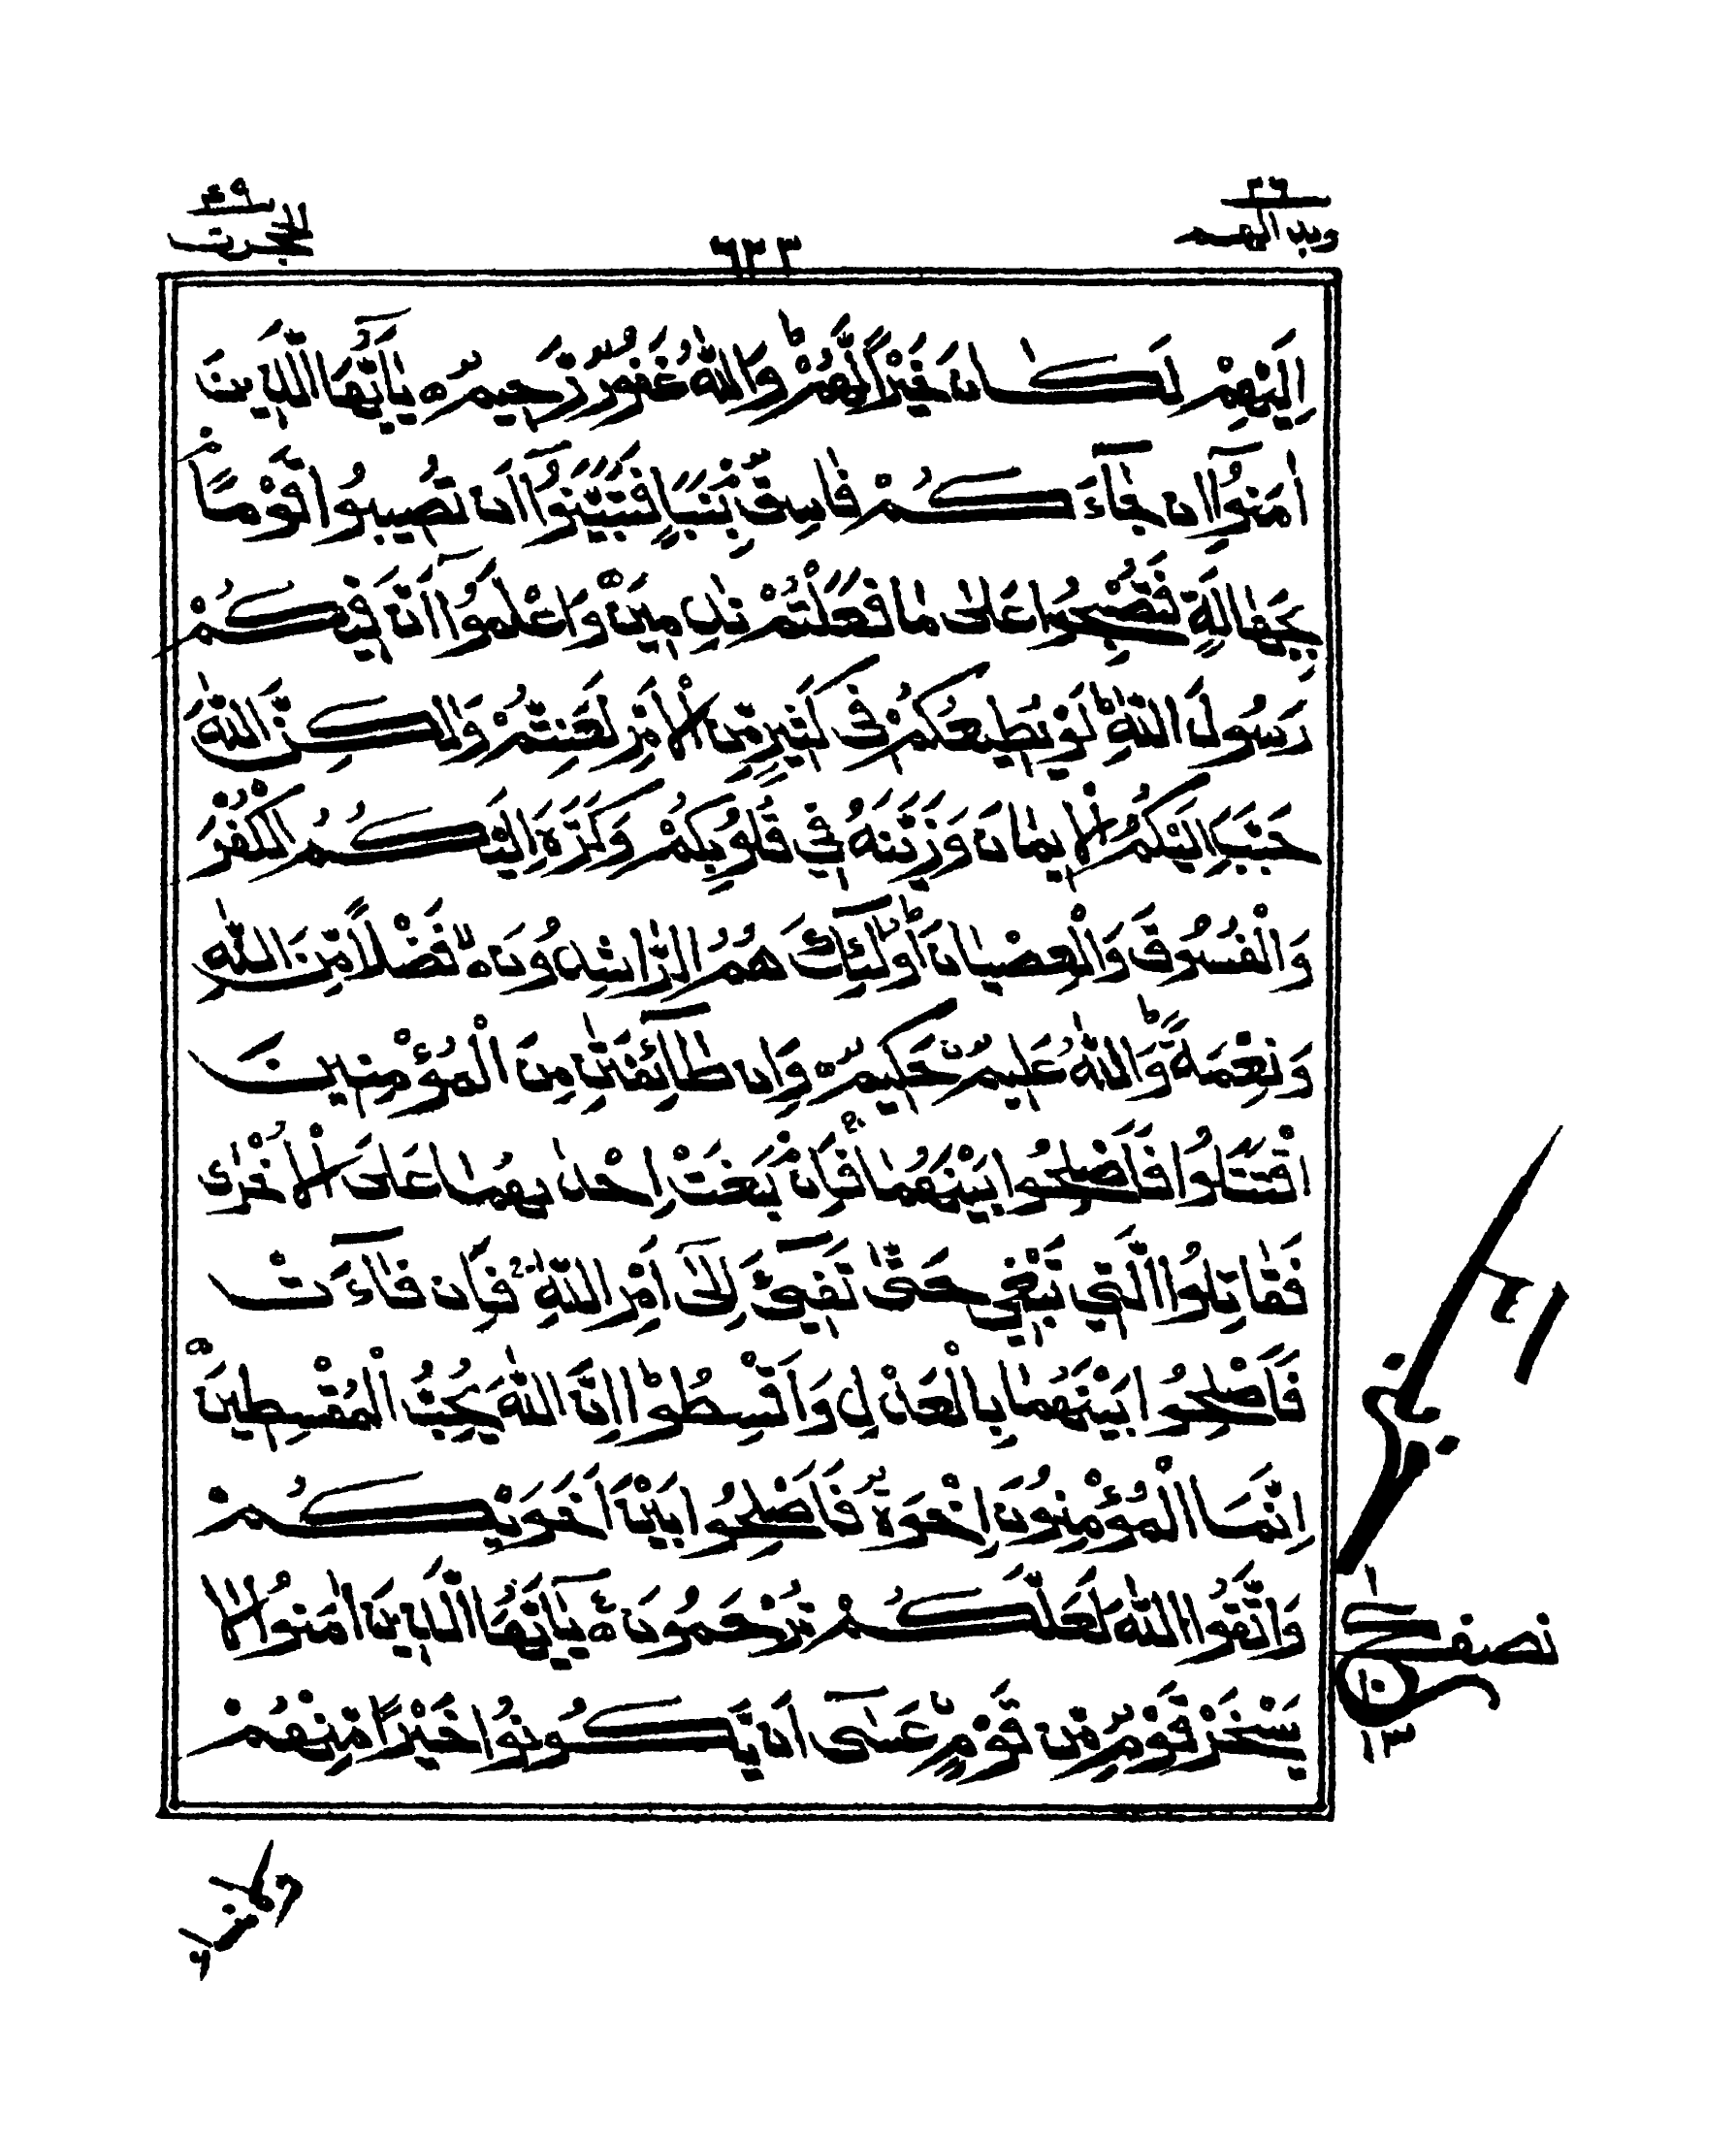 ٢٦
٤٩
ويبد الهم
٦٣٣
الحجرت
اِلَيْهِمْ لَكَانَ خَيْرًا لَّهُمْ ؕ وَاللّٰهُ غَفُوْرٌ رَّحِيْمٌ ٥ يٰۤاَيُّهَا الَّذِيْنَ
اٰمَنُوْۤا اِنْ جَآءَكُمْ فَاسِقٌۢ بِنَبَاٍ فَتَبَيَّنُوْۤا اَنْ تُصِيْبُوْا قَوْمًا ۢ
بِجَهَالَةٍ فَتُصْبِحُوْا عَلٰى مَا فَعَلْتُمْ نٰدِمِيْنَ ٥ وَاعْلَمُوْۤا اَنَّ فِيْكُمْ
رَسُوْلَ اللّٰهِ ؕ لَوْ يُطِيْعُكُمْ فِيْ كَثِيْرٍ مِّنَ الْاَمْرِ لَعَنِتُّمْ وَلٰكِنَّ اللّٰهَ
حَبَّبَ اِلَيْكُمُ الْاِيْمَانَ وَزَيَّنَهٗ فِيْ قُلُوْبِكُمْ وَكَرَّهَ اِلَيْكُمُ الْكُفْرَ
وَالْفُسُوْقَ وَالْعِصْيَانَ ؕ اُولٰٓئِكَ هُمُ الرّٰشِدُوْنَ ٥ لا فَضْلًا مِّنَ اللّٰهِ
وَنِعْمَةً ؕ وَاللّٰهُ عَلِيْمٌ حَكِيْمٌ ٥ وَاِنْ طَآئِفَتٰنِ مِنَ الْمُؤْمِنِيْنَ
اقْتَتَلُوْا فَاَصْلِحُوْا بَيْنَهُمَا ۚ فَاِنْۢ بَغَتْ اِحْدٰىهُمَا عَلَى الْاُخْرٰى
فَقَاتِلُوا الَّتِيْ تَبْغِيْ حَتّٰى تَفِيْٓءَ اِلٰۤى اَمْرِ اللّٰهِ ۚ فَاِنْ فَآءَتْ
فَاَصْلِحُوْا بَيْنَهُمَا بِالْعَدْلِ وَاَقْسِطُوْا ؕ اِنَّ اللّٰهَ يُحِبُّ الْمُقْسِطِيْنَ ٥
اِنَّمَا الْمُؤْمِنُوْنَ اِخْوَةٌ فَاَصْلِحُوْا بَيْنَ اَخَوَيْكُمْ
وَاتَّقُوا اللّٰهَ لَعَلَّكُمْ تُرْحَمُوْنَ ٥ ع يٰۤاَيُّهَا الَّذِيْنَ اٰمَنُوْا لَا
يَسْخَرْ قَوْمٌ مِّنْ قَوْمٍ عَسٰۤى اَنْ يَّكُوْنُوْا خَيْرًا مِّنْهُمْ
نصف
ع
١٠
١٣